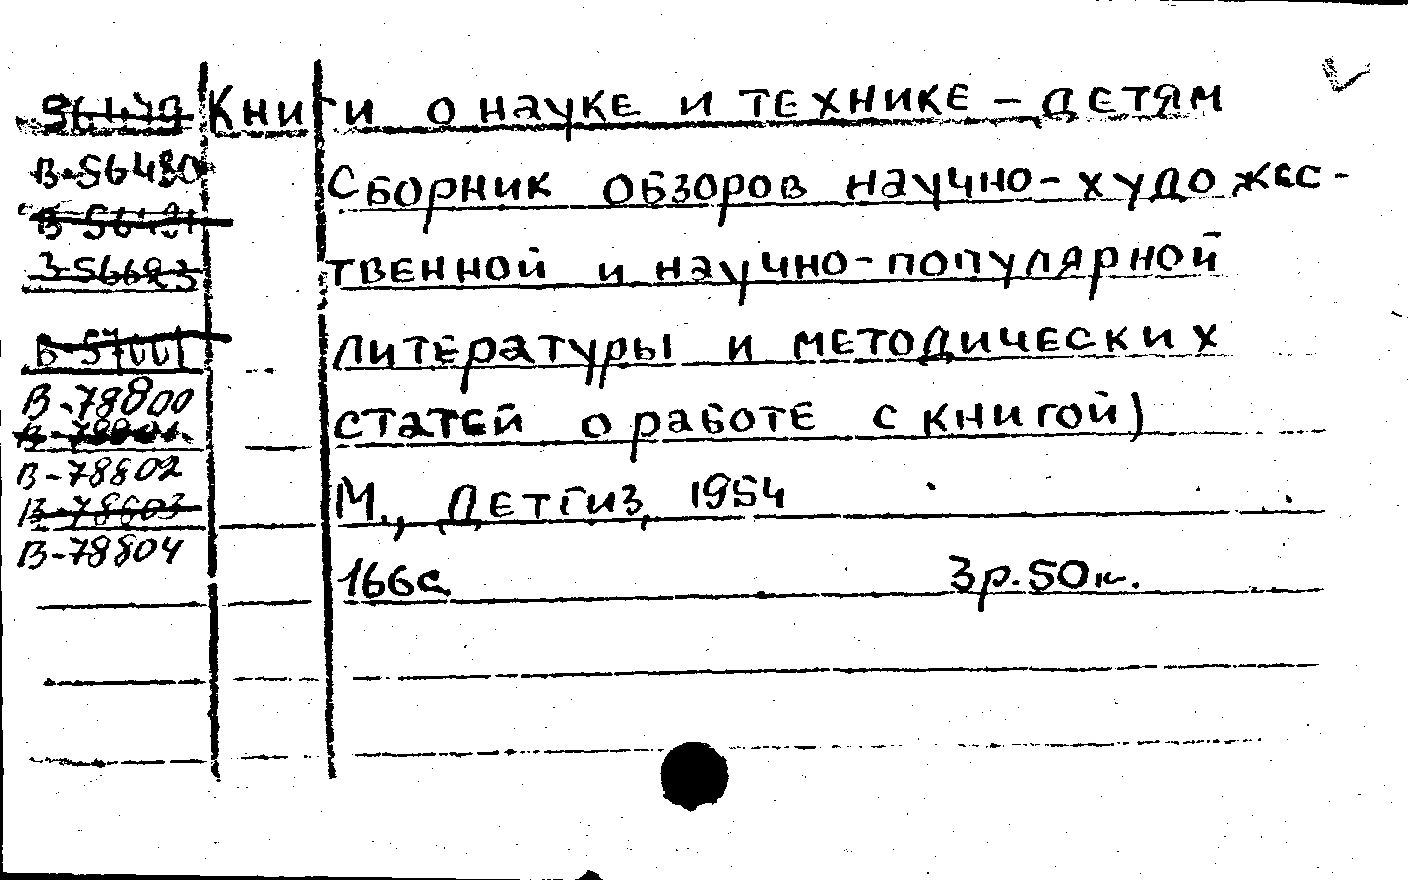 Книги о науке и технике – детям
В-56480
Сборник обзоров научно-художес-
твенной и научно-популярной
литературы и методических
В-78800
статей о работе с книгой)
В-78802
М., Детгиз, 1954
В-78804
166с. 3р.50к.